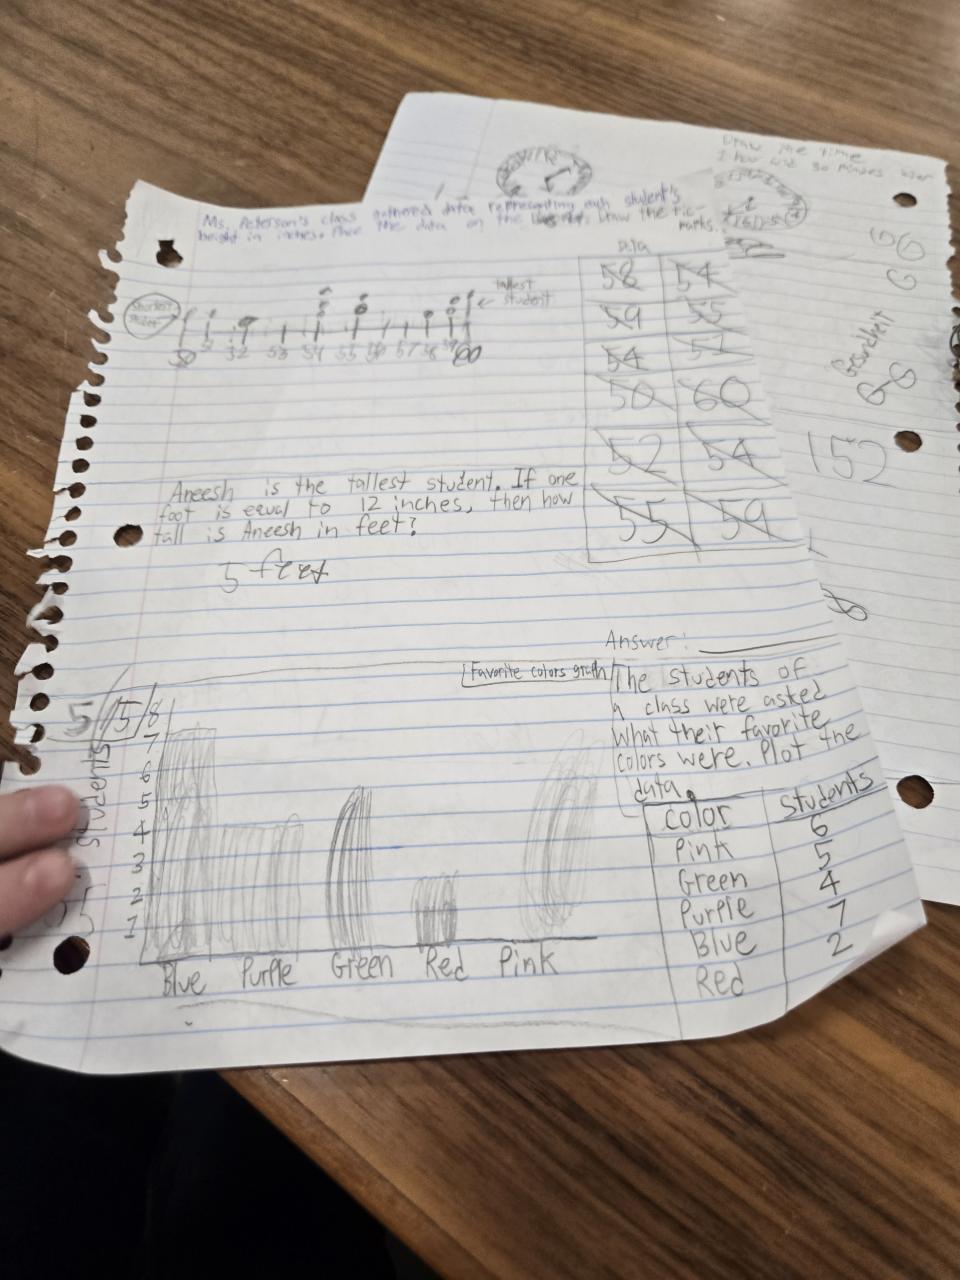 Draw the time
Ms. Peterson's class gathered data representing each student's
height in inches. Place the data on the Draw the tic-
marks.
Data
58 54
59 55
54 51
50 60
52 54
55 59
tallest
student
Shortest
50 51 52 53 54 55 56 57 58 59 60
Aneesh is the tallest student. If one
foot is equal to 12 inches, then how
tall is Aneesh in feet?
5 feet
Answer:
Favorite colors graph
The students of
a class were asked
what their favorite
colors were. Plot the
data.
5/5
students
8
7
6
5
4
3
2
1
Blue Purple Green Red Pink
Color Students
Pink 6
Green 5
Purple 4
Blue 7
Red 2
GG
G
Gesucheit
G8
152